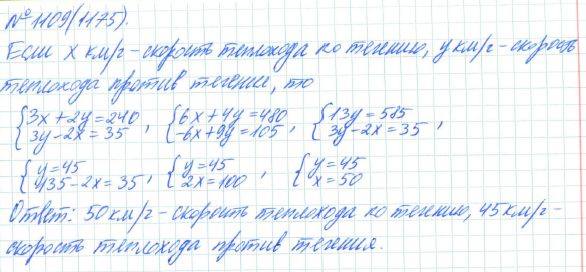 №1109(1175).
Если x км/г – скорость теплохода по течению, y км/г – скорость
теплохода против течения, то
{3x+2y=240 {6x+4y=480 {13y=585
3y-2x=35 , -6x+9y=105 , 3y-2x=35 ,
{y=45 {y=45 {y=45
135-2x=35 , 2x=100 , x=50
Ответ: 50 км/г – скорость теплохода по течению, 45 км/г –
скорость теплохода против течения.